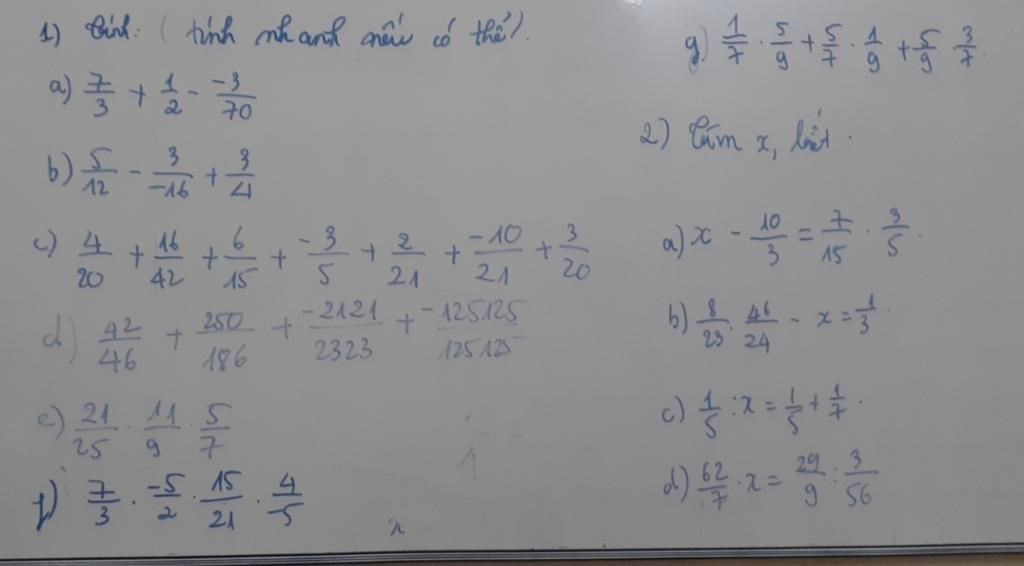 1) Tính: (tính nhanh nếu có thể).
a) 7/3 + 1/2 - -3/70
b) 5/12 - 3/-16 + 3/4
c) 4/20 + 16/42 + 6/15 + -3/5 + 2/21 + -10/21 + 3/20
d) 42/46 + 250/186 + -2121/2323 + -125125/125125
e) 21/25 . 11/9 . 5/7
f) 7/3 . -5/2 . 15/21 . 4/-5
g) 1/7 . 5/9 + 5/7 . 1/9 + 5/9 . 3/7.
2) Tìm x, biết.
a) x - 10/3 = 7/15 . 3/5.
b) 8/23 . 46/24 - x = 1/3.
c) 1/5 : x = 1/5 + 1/7.
d) 62/7 . x = 29/9 : 3/56